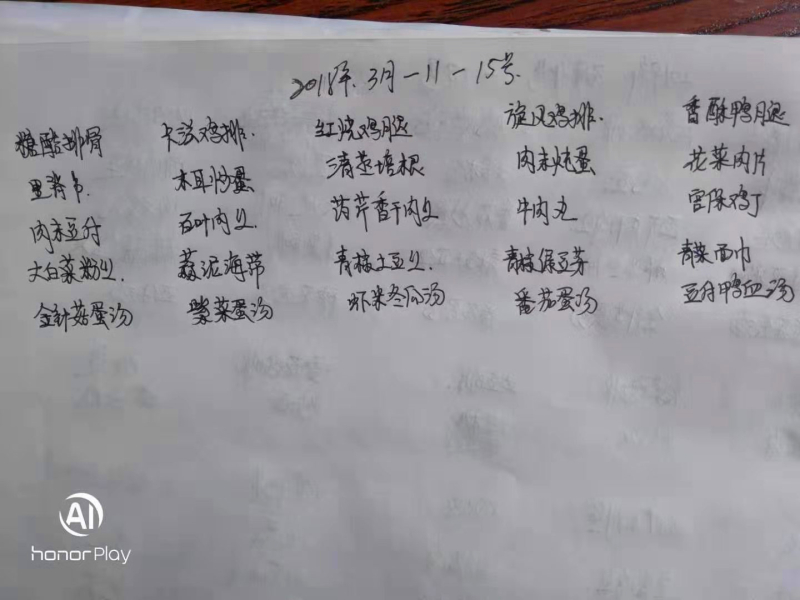 2018年.3月-11-15号.
糖醋排骨 卡滋鸡排. 红烧鸡腿 旋风鸡排. 香酥鸭腿
里脊片 木耳炒蛋 清蒸培根 肉末炖蛋 花菜肉片
肉末豆付 百叶肉丝 药芹香干肉丝 牛肉丸 宫保鸡丁
大白菜粉丝 蒜泥海带 青椒土豆丝. 青椒绿豆芽 青菜面巾
金针菇蛋汤 紫菜蛋汤 虾米冬瓜汤 番茄蛋汤 豆付鸭血汤
AI
honorPlay